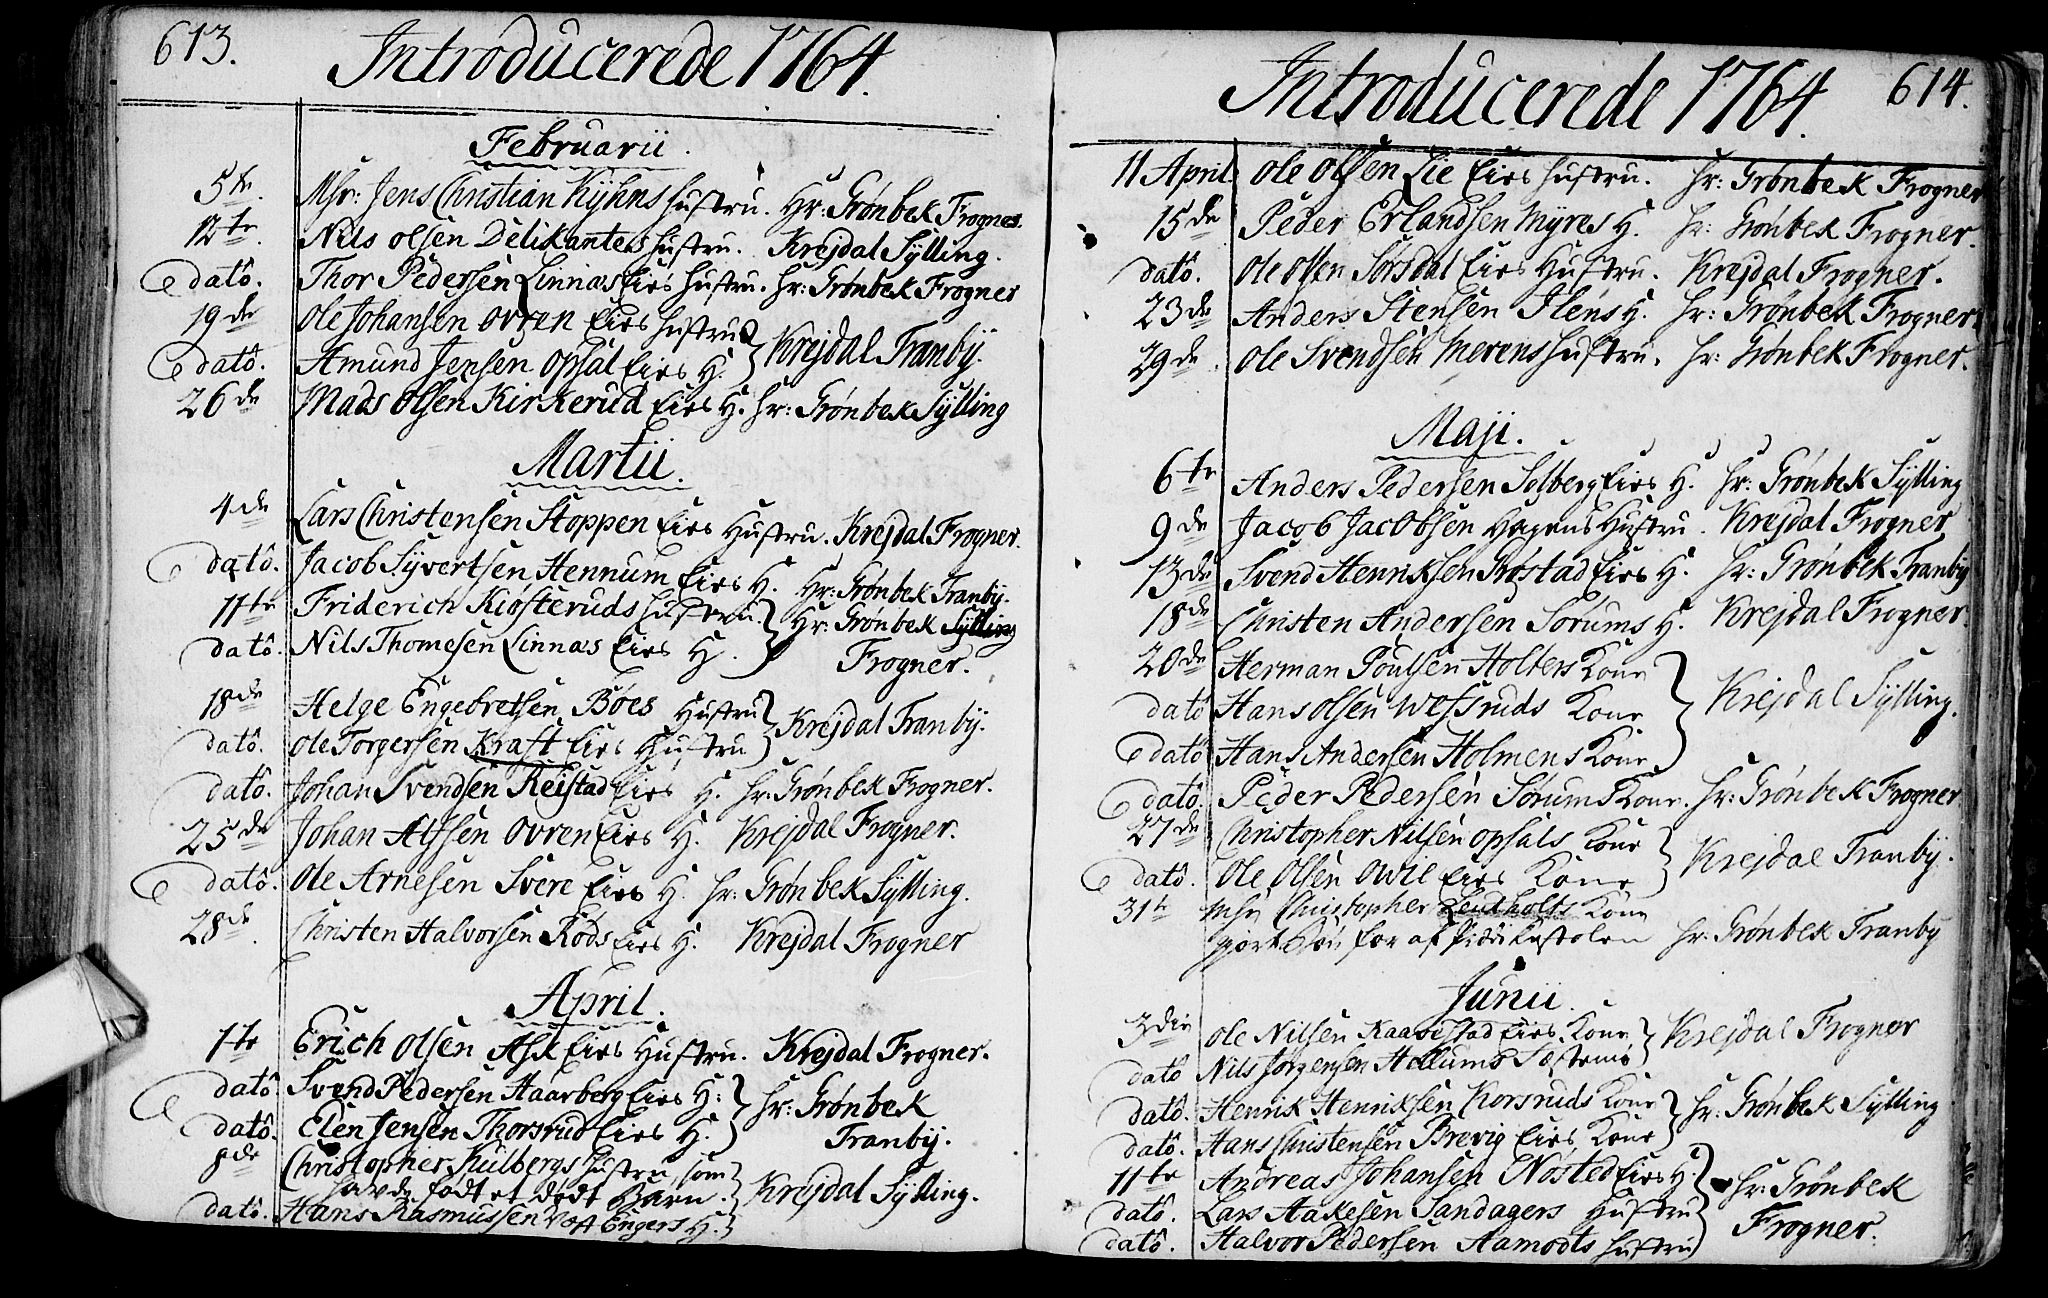 613.
Introducerede 1764.
Februarii.
5te. Mhr: Jens Christian Kyhns Hustru. Hr: Grønbek Frogner.
12te. Nils Olsen Delikantes Hustru. Krejdal Sylling.
dato. Thor Pedersen Linnæs Eies Hustru. Hr: Grønbek Frogner
19de Ole Johansen Ovren Eies Hustru
dato. Amund Jensen Opsal Eies H. Krejdal Tranby.
26de Mads Olsen Kirkerud Eies H. Hr: Grønbek Sylling
Martii.
4de Lars Christensen Stoppen Eies Hustru. Krejdal Frogner.
dato. Jacob Syvertsen Hennum Eies H. Hr: Grønbek Tranby.
11te Friderich Kiøsteruds Hustru. Hr: Grønbek Sylling
dato. Nils Thomesen Linnæs Eies H. Frogner.
18de Helge Engebretsen Bøes Hustru
dato. Ole Torgersen Kraft Eies Hustru Krejdal Tranby.
dato. Johan Svendsen Reistad Eies H. Hr: Grønbek Frogner.
25de Johan Alfsen Ovren Eies H. Krejdal Frogner.
dato. Ole Arnesen Svere Eies H. Hr: Grønbek Sylling.
28de. Christen Halvorsen Røds Eies H. Krejdal Frogner
April.
1te Erich Olsen Ask Eies Hustru. Krejdal Frogner.
dato Svend Pedersen Haarberg Eies H: Hr: Grønbek
dato. Elen Jensen Thorsrud Eies H. Tranby.
8de Christopher Kuilbergs Hustru som
havde født et dødt Barn. Krejdal Sylling.
dato. Hans Rasmussen Engers H.
Introducerede 1764. 614.
11 April. Ole Olsen Lie Eies Hustru. Hr: Grønbek Frogner
15de Peder Erlandsen Myres H. Hr: Grønbek Frogner.
dato. Ole Olsen Sørsdal Eies Hustru. Krejdal Frogner.
23de Anders Stensen Iléns H. Hr: Grønbek Frogner
29de. Ole Svendsen Merens Hustru. Hr: Grønbek Frogner.
Maji.
6te Anders Pedersen Solberg Eies H. Hr: Grønbek Sylling
9de Jacob Jacobsen Hagens Hustru. Krejdal Frogner
13de Svend Henriksen Prøstad Eies H. Hr: Grønbek Tranby
18de Christen Andersen Sørums H. Krejdal Frogner.
20de Herman Poulsen Holters Kone
dato Hans Olsen Wefsruds Kone Krejdal Sylling.
dato Hans Andersen Holmens Kone
dato. Peder Pedersen Sørums Kone. Hr: Grønbek Frogner
27de Christopher Nilsen Opsals Kone
dato. Ole Olsen Owil Eies Kone Krejdal Tranby.
31te Mhr Christopher Leutholts Kone
for af Prædikestolen Hr: Grønbek Tranby
Junii.
3die Ole Nilsen Kaarestad Eies Kone Krejdal Frogner
dato Nils Jørgensen Hellums
dato. Henrik Henriksen Korsruds Kone Hr: Grønbek Sylling
dato. Hans Christensen Brevig Eies Kone
11te Andreas Johansen Nøsted Eies H. Hr: Grønbek
dato. Lars Aakesen Sandagers Hustru Frogner.
dato. Halvor Pedersen Aamodts Hustru